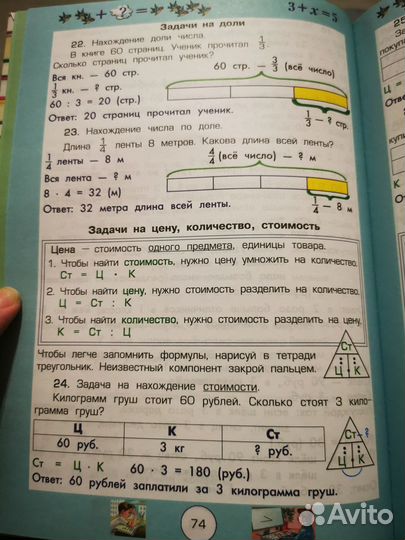 + ? =
3 + х = 5
Задачи на доли
22. Нахождение доли числа.
В книге 60 страниц. Ученик прочитал 1/3.
Сколько страниц прочитал ученик?
Вся кн. — 60 стр.
60 стр. — 3/3 (всё число)
1/3 кн. — ? стр.
60 : 3 = 20 (стр.)
Ответ: 20 страниц прочитал ученик.
1/3 — ? стр.
23. Нахождение числа по доле.
Длина 1/4 ленты 8 метров. Какова длина всей ленты?
1/4 ленты — 8 м
4/4 (всё число) — ? м
Вся лента — ? м
8 · 4 = 32 (м)
Ответ: 32 метра длина всей ленты.
1/4 — 8 м
Задачи на цену, количество, стоимость
Цена — стоимость одного предмета, единицы товара.
1. Чтобы найти стоимость, нужно цену умножить на количество.
Ст = Ц · К
2. Чтобы найти цену, нужно стоимость разделить на количество.
Ц = Ст : К
3. Чтобы найти количество, нужно стоимость разделить на цену.
К = Ст : Ц
Чтобы легче запомнить формулы, нарисуй в тетради
треугольник. Неизвестный компонент закрой пальцем.
Ст
Ц · К
24. Задача на нахождение стоимости.
Килограмм груш стоит 60 рублей. Сколько стоят 3 кило-
грамма груш?
Ц К Ст
60 руб. 3 кг ? руб.
Ст ?
Ц · К
Ст = Ц · К 60 · 3 = 180 (руб.)
Ответ: 60 рублей заплатили за 3 килограмма груш.
74
Avito